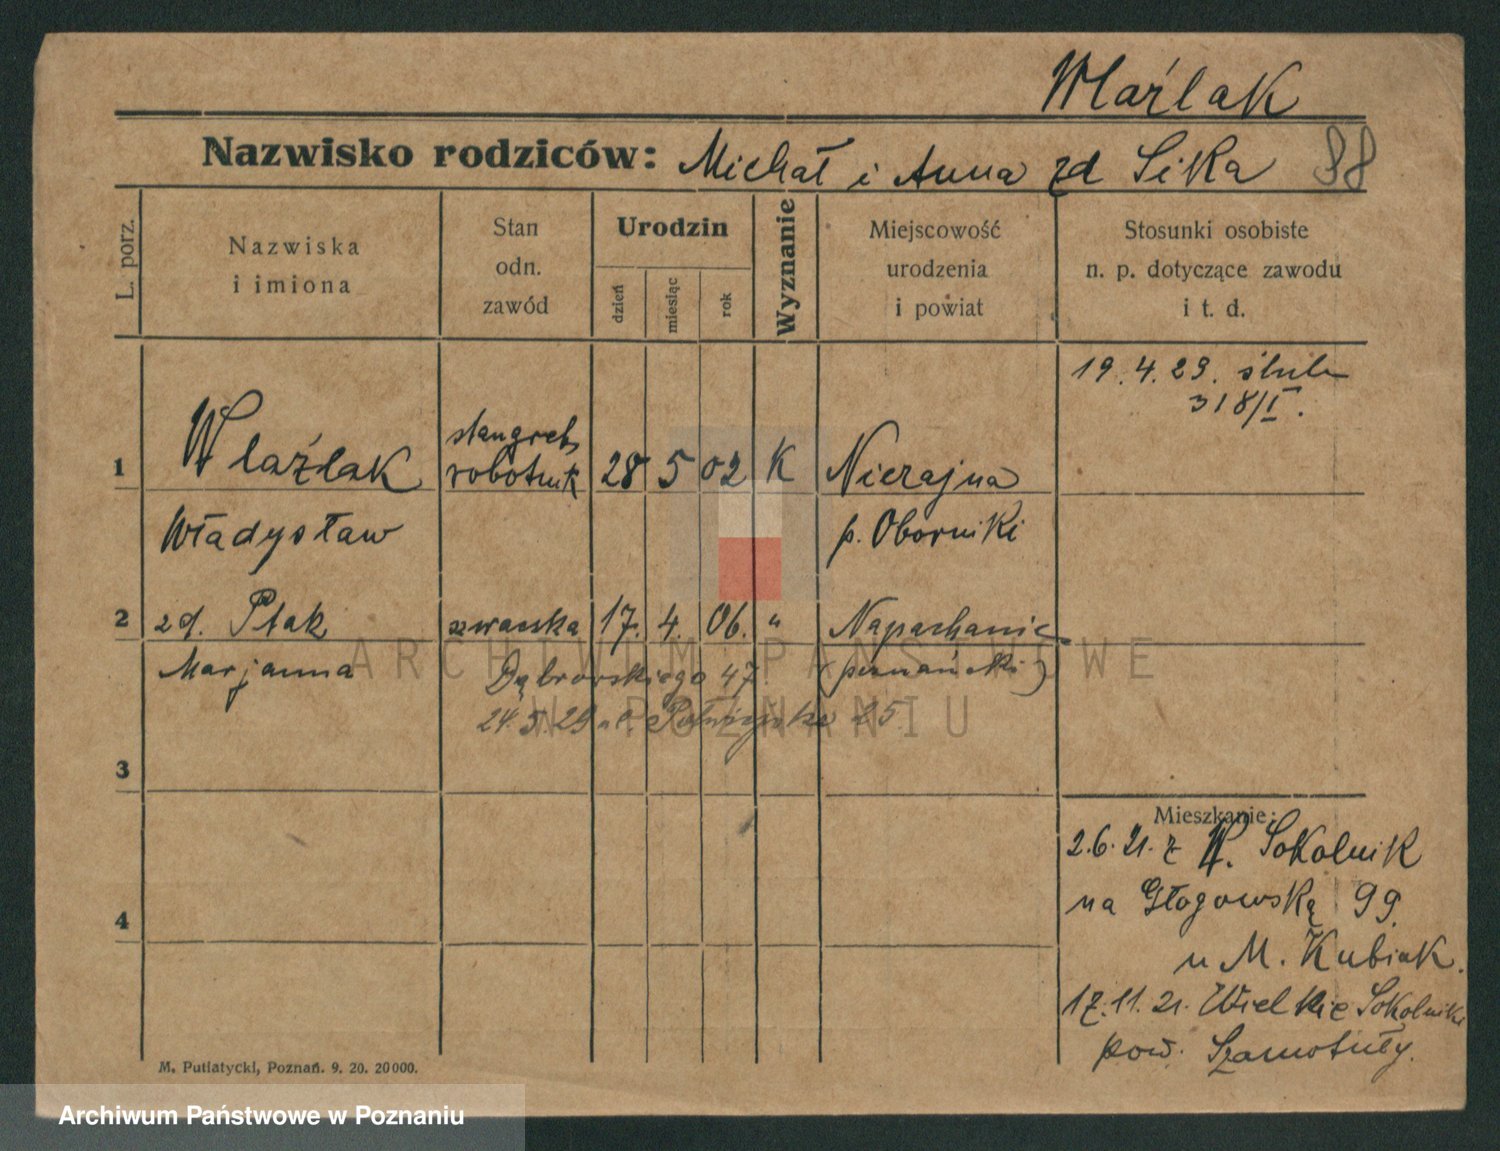 Wlaźlak
Nazwisko rodziców: Michał i Anna zd Sika 88
L. porz.
Nazwiska i imiona
Stan odn. zawód
Urodzin
dzień miesiąc rok
Wyznanie
Miejscowość urodzenia i powiat
Stosunki osobiste n. p. dotyczące zawodu i t. d.
19.4.29. ślub
318/I.
stangret
1 Wlaźlak robotnik 28 5 02 K Nieczajna
Władysław p. Oborniki
2 zd. Ptak szwaczka 17. 4. 06. " Napachanie
Marjanna Dąbrowskiego 47 (poznański)
24.5.29 25
3
Mieszkanie:
2.6.21. z W. Sokolnik
na Głogowską 99.
4
u M. Kubiak.
17.11.21. Wielkie Sokolniki
pow. Szamotuły.
M. Putiatycki, Poznań. 9. 20. 20000.
ARCHIWUM PAŃSTWOWE
W POZNANIU
Archiwum Państwowe w Poznaniu